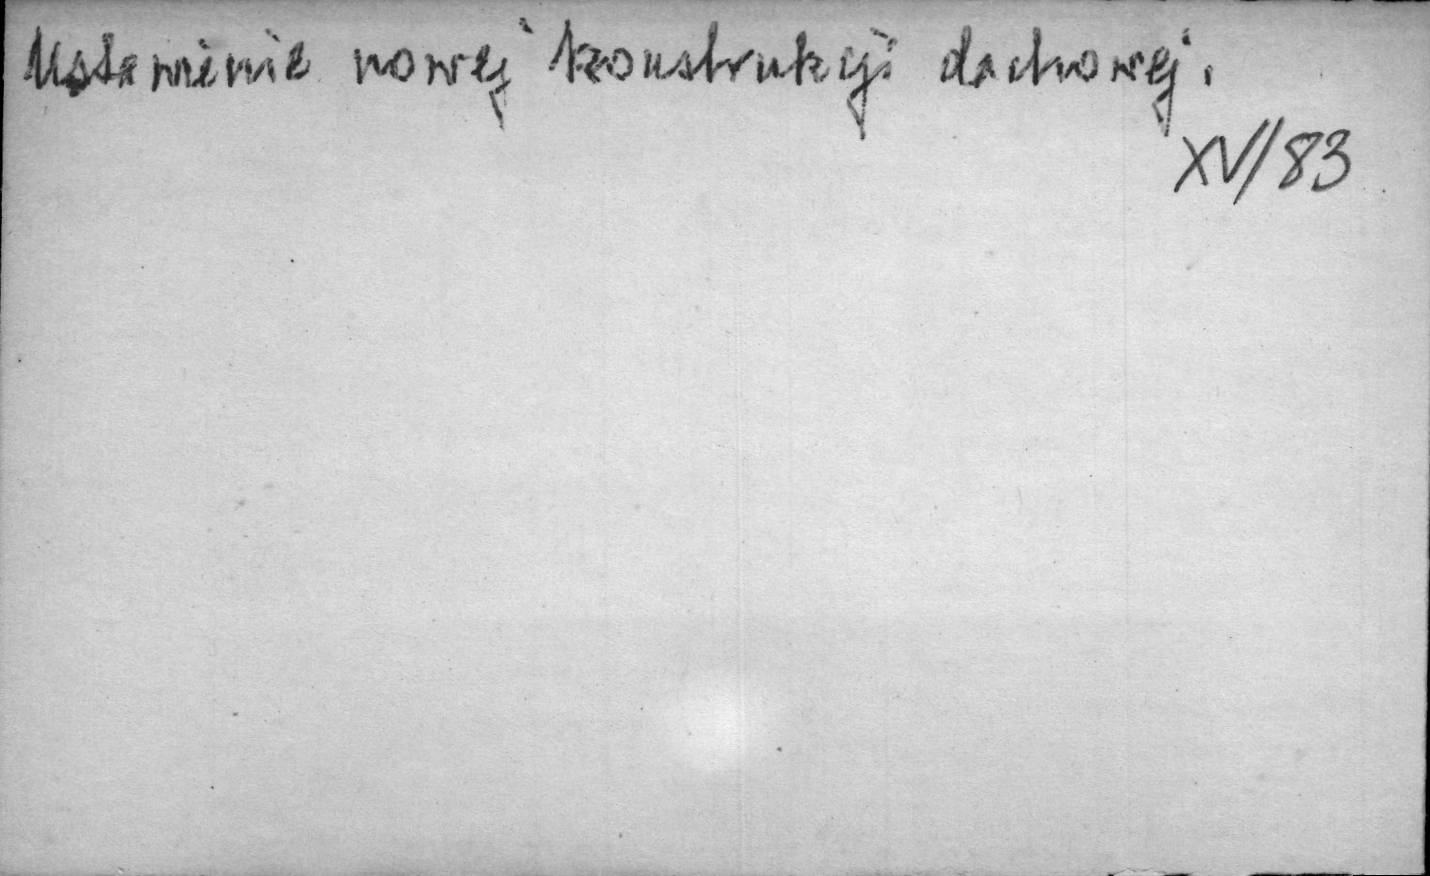 Ustawienie nowej konstrukcji dachowej.
XV/83